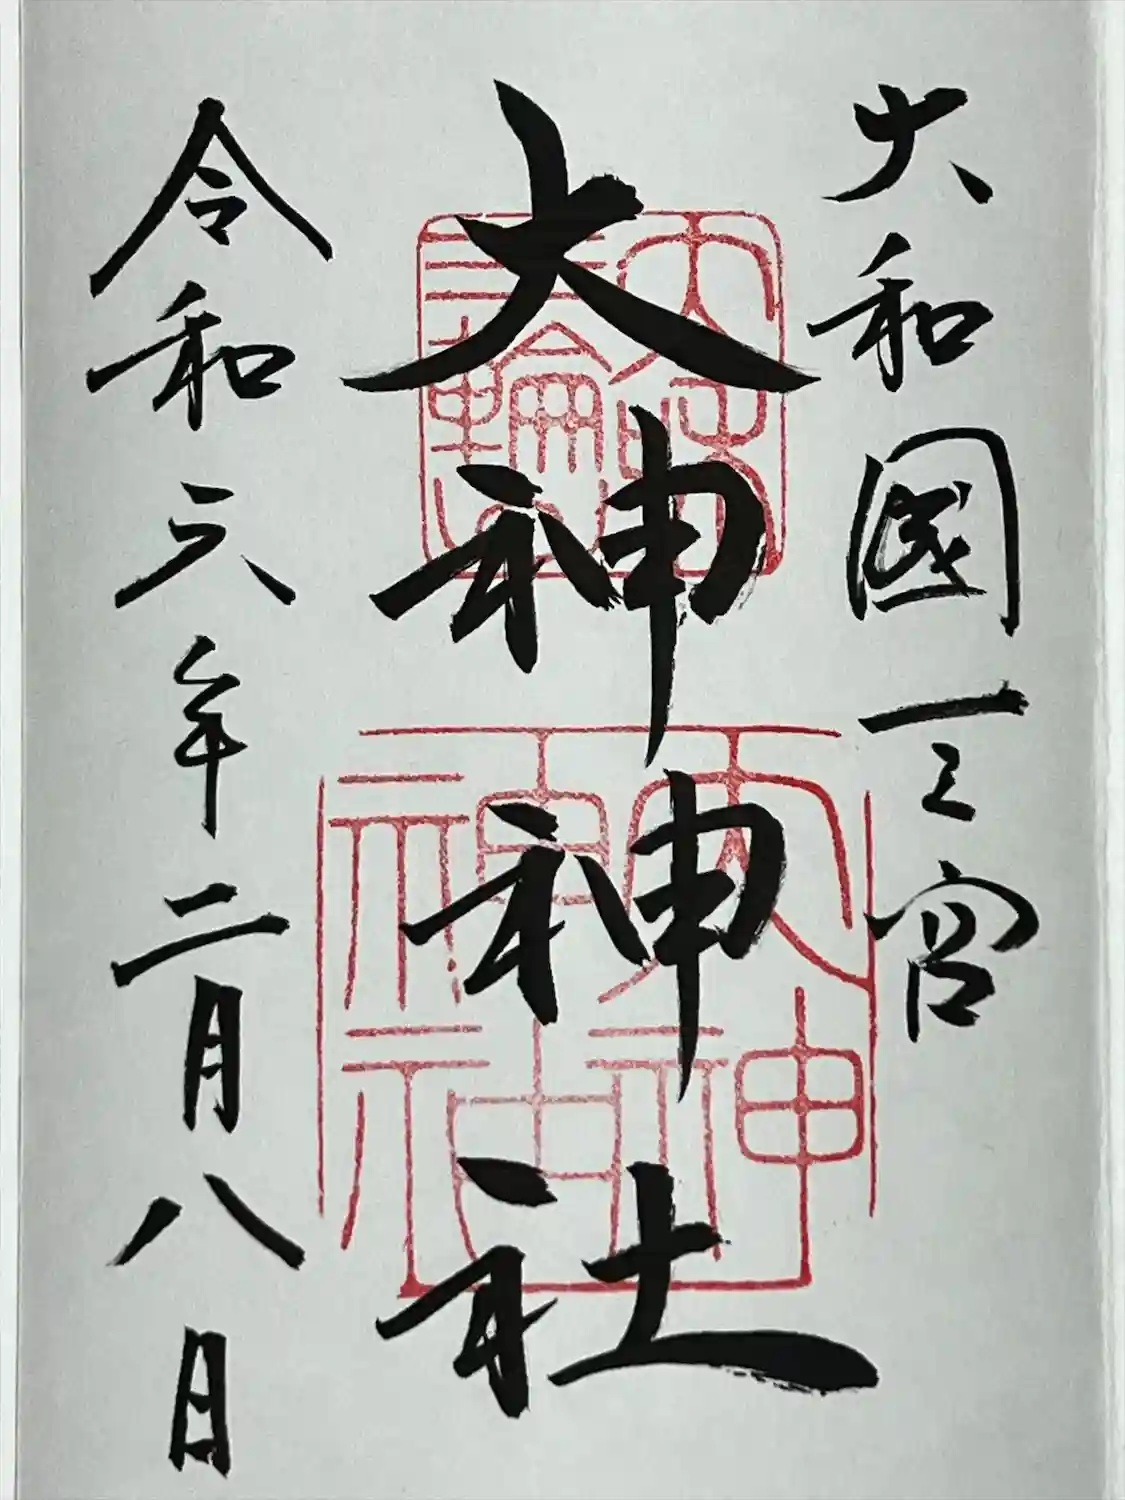 大和國一之宮
大神神社
令和六年二月八日
大神神社